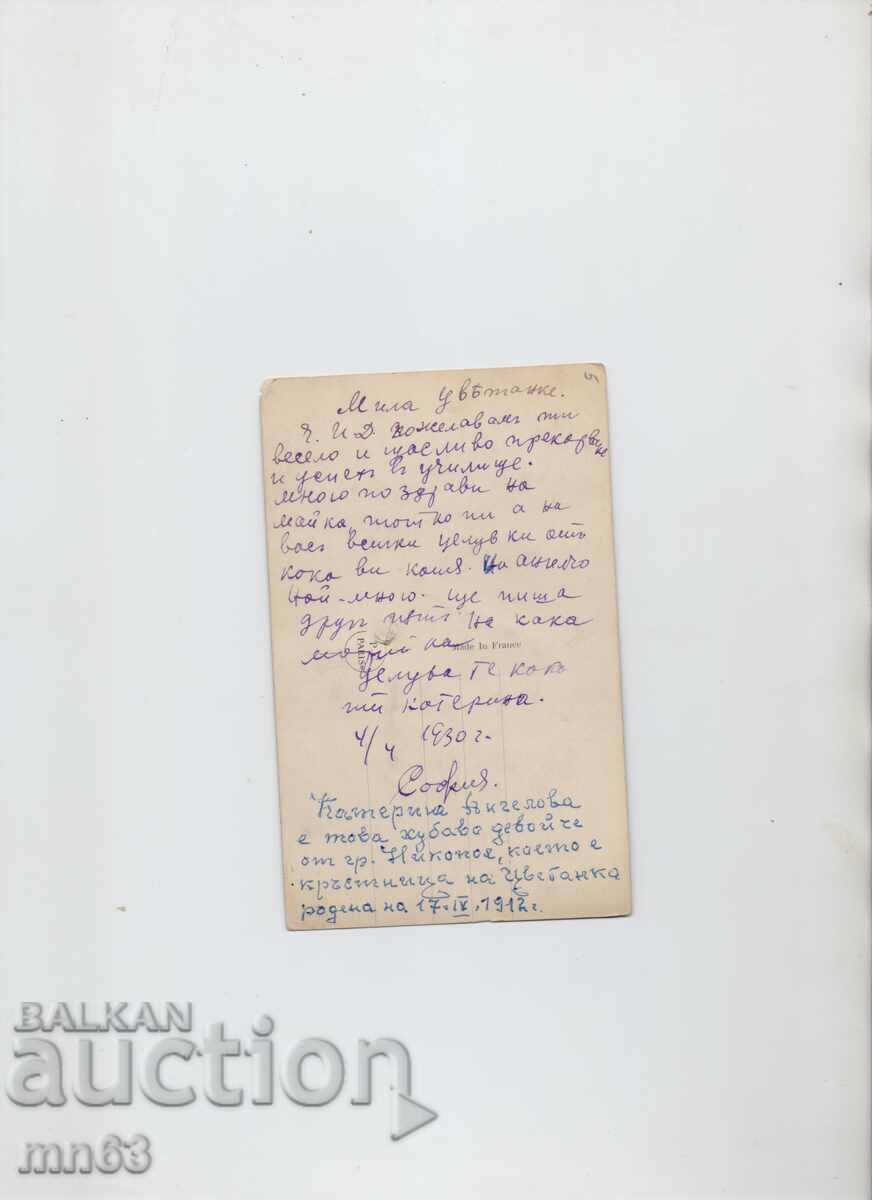 5
Мила Цвѣтанке.
Ч. И Д. пожелавамъ ти
весело и щасливо прекарване
и успехъ въ училище.
много поздрави на
майка, тати а на
васъ всички целувки отъ
кака ви Катя. На Ангелчо
най-много. Ще пиша
другъ пѫть на кака
Made In France
PARIS
целува те кака
ти Катерина.
4/4 1930 г.
София.
Катерина Ангелова
е това хубаво девойче
от гр. Никопол, което е
кръстница на Цветанка
родена на 17.IV.1912 г.
BALKAN
auction
mn63